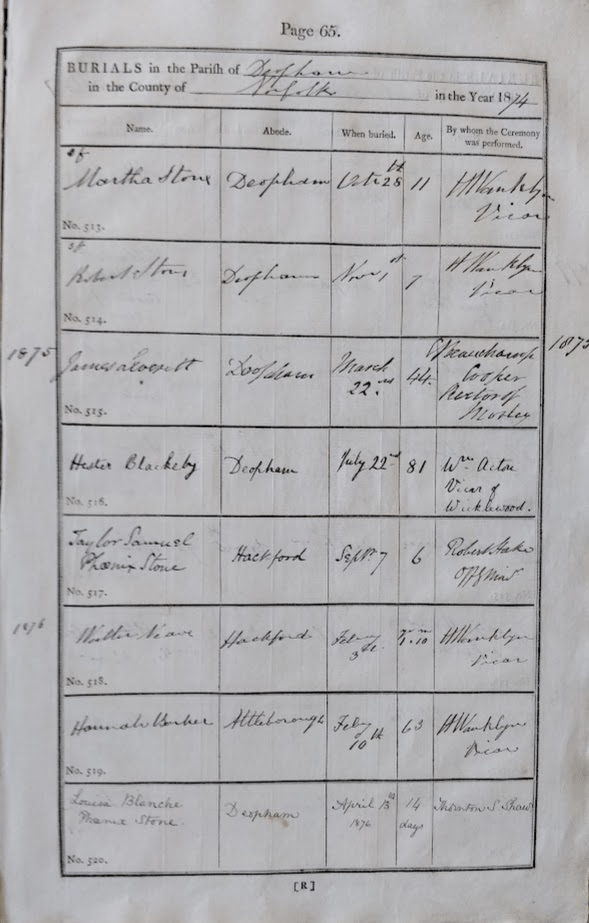 Page 65.
BURIALS in the Parish of Deopham
in the County of Norfolk in the Year 1874
Name. Abode. When buried. Age. By whom the Ceremony was performed.
Martha Stone Deopham Octr 25th 11 HWanklyn
Vicar
No. 513.
Robert Stone Deopham Novr 1st 7 HWanklyn
Vicar
No. 514.
1875 James Leveritt Deopham March 44 Beauchamp 1875
22nd Cooper
Rector of
Morley
No. 515.
Hester Blackeby Deopham July 22nd 81 Wm Acton
Vicar of
Wicklewood.
No. 516.
Taylor Samuel
Phœnix Stone Hackford Septr 7 6 Robert Hake
Offg Minr
No. 517.
1876 Walter Neave Hackford Feby HWanklyn
3rd Vicar
No. 518.
Hannah Barker Attleborough Feby 63 HWanklyn
10th Vicar
No. 519.
Louisa Blanche
Phœnix Stone. Deopham April 13th 14 Thornton S Shaw
1876 days
No. 520.
[R]